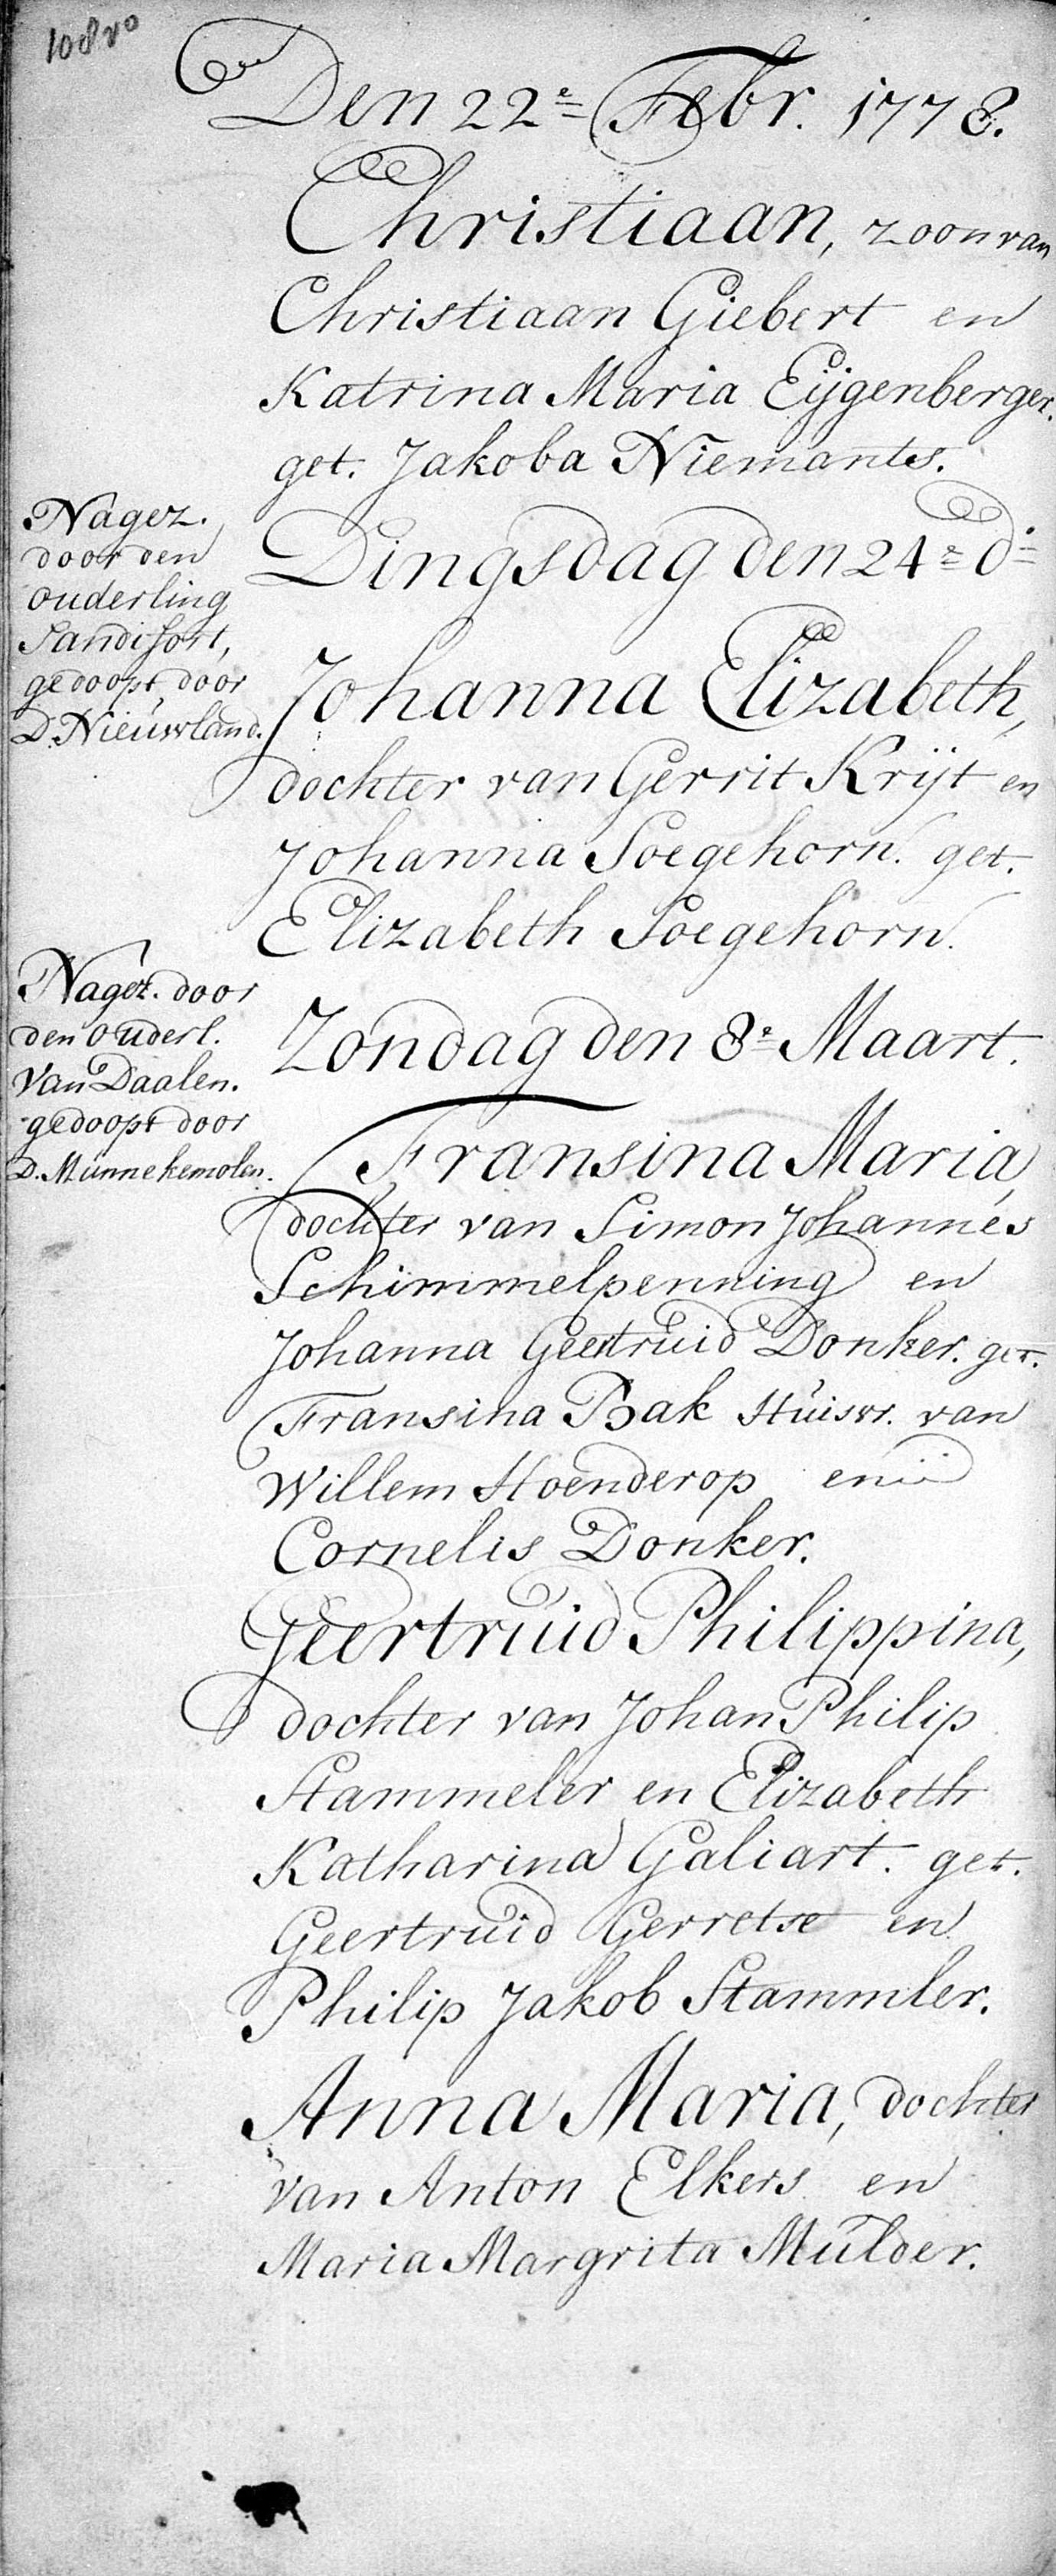 108vo
Den 22e Febr. 1778.
Christiaan, zoon van
Christiaan Giebert en
Katrina Maria Eijgenberger.
get. Jakoba Niemants.
Nagez.
door den
ouderling
Sandifort,
gedoopt door
D. Nieuwland.
Dingsdag den 24e do
Johanna Elizabeth,
dochter van Gerrit Krijt en
Johanna Soegehorn. get.
Elizabeth Soegehorn.
Nagez. door
den ouderl.
van Daalen.
gedoopt door
D. Munnekemolen.
Zondag den 8e Maart.
Fransina Maria,
dochter van Simon Johannes
Schimmelpenning en
Johanna Geertruid Donker. get.
Fransina Bak Huisvr. van
Willem Hoenderop en
Cornelis Donker.
Geertruid Philippina,
dochter van Johan Philip
Stammeler en Elizabeth
Katharina Galiart. get.
Geertruid Gerretse en
Philip Jakob Stammler.
Anna Maria, dochter
van Anton Elkers en
Maria Margrita Mulder.